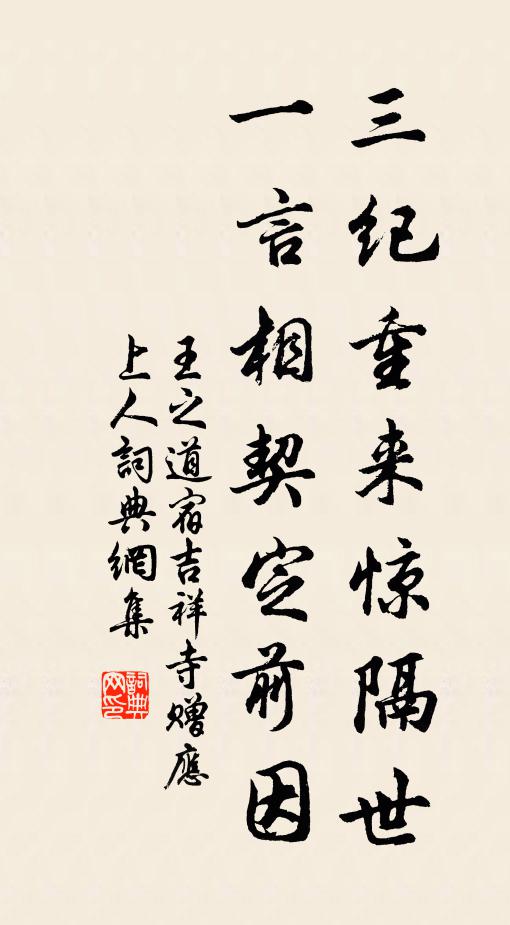 三纪重来惊隔世
一言相契定前因
王之道宿吉祥寺赠應
上人詞典網集
詞典
网印